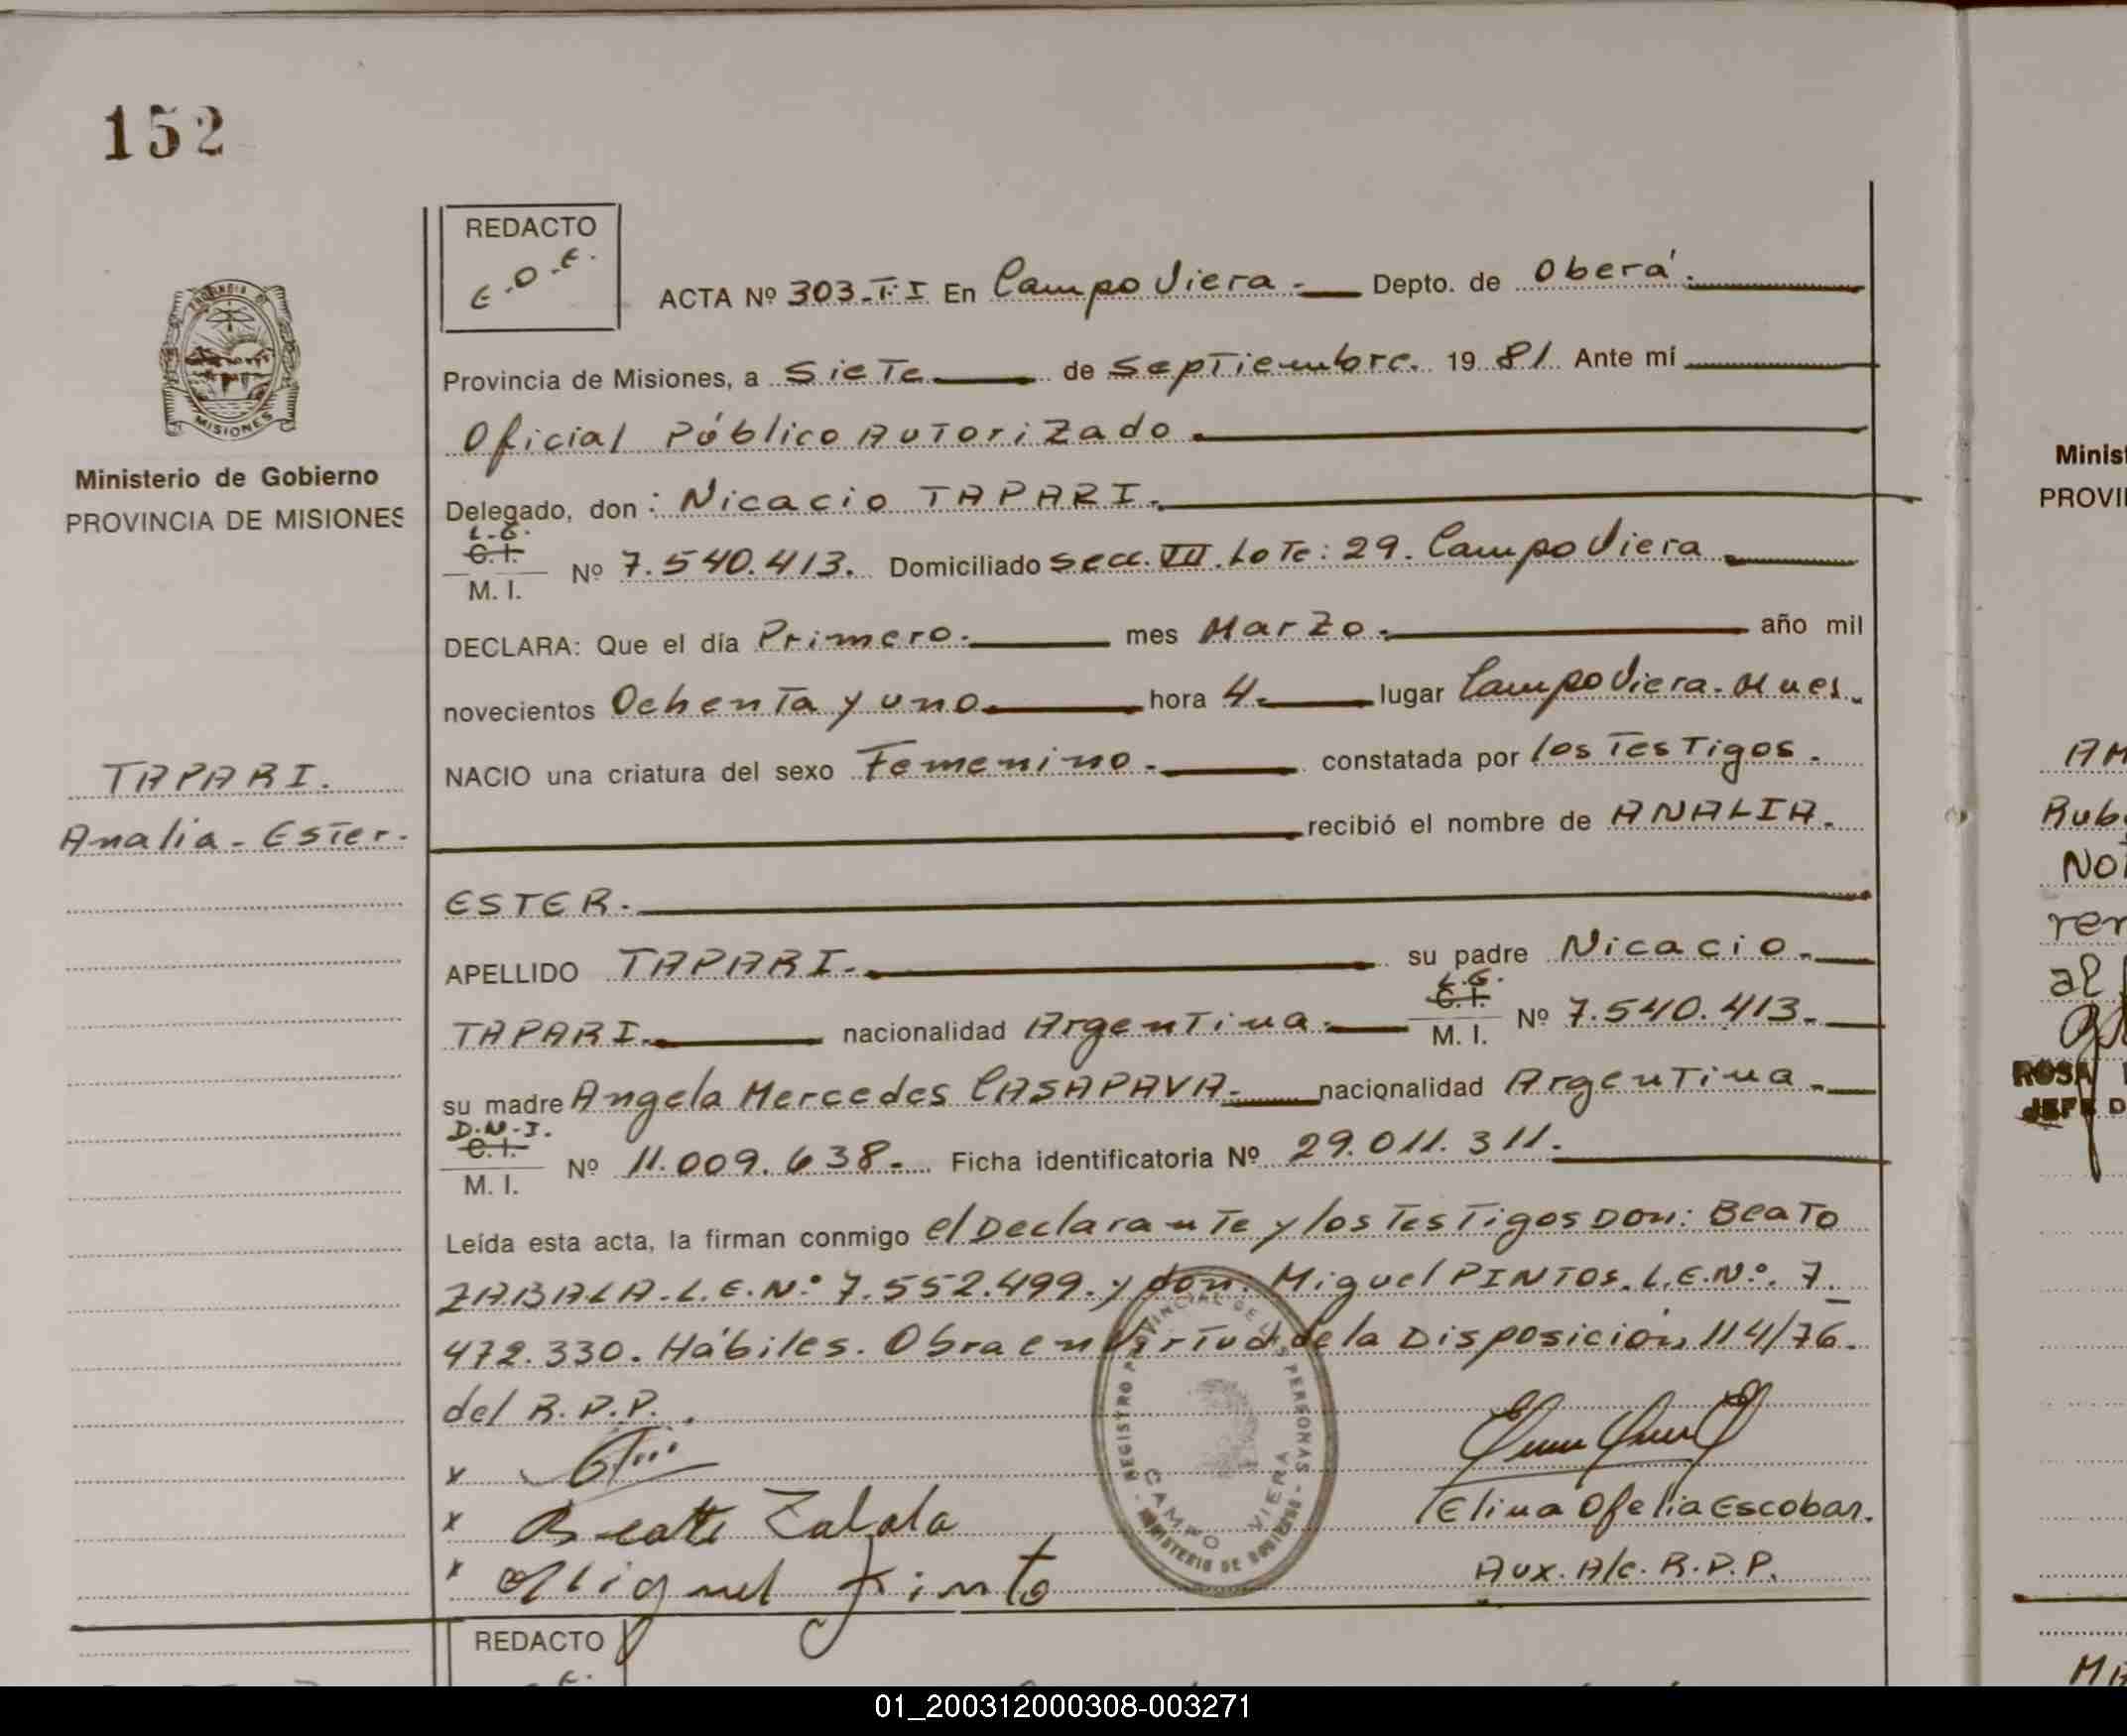 152
REDACTO
E.O.E.
ACTA Nº 303.T.I En Campo Viera. Depto. de Oberá.
Provincia de Misiones, a Siete de Septiembre. 19 81. Ante mí
Oficial Público Autorizado.
Delegado, don : Nicacio TAPARI.
L.E.
C.I.
M. I.
Nº 7.540.413. Domiciliado secc. VII. Lote: 29. Campo Viera
DECLARA: Que el día Primero. mes Marzo. año mil
novecientos Ochenta y uno. hora 4. lugar Campo Viera. Mnes.
NACIO una criatura del sexo Femenino. constatada por los Testigos.
recibió el nombre de ANALIA.
ESTER.
APELLIDO TAPARI. su padre Nicacio.
TAPARI. nacionalidad Argentina.
L.E.
C.I.
M. I.
Nº 7.540.413.
su madre Angela Mercedes CASAPAVA. nacionalidad Argentina.
D.N.I.
C.I.
M. I.
Nº 11.009.638. Ficha identificatoria Nº 29.011.311.
Leída esta acta, la firman conmigo el Declarante y los Testigos Don: Beato
ZABALA. L.E.N.º 7.552.499. y don: Miguel PINTOS. L.E.Nº. 7.
472.330. Hábiles. Obra en virtud de la Disposición 114/76.
del R.P.P..
x
x Beato Zabala
x Miguel Pinto
Elina Ofelia Escobar.
Aux. A/c. R.P.P.
REGISTRO PROVINCIAL DE LAS PERSONAS
CAMPO VIERA
MINISTERIO DE GOBIERNO
PROVINCIA DE
MISIONES
Ministerio de Gobierno
PROVINCIA DE MISIONES
TAPARI.
Analia - Ester.
REDACTO
Minist
PROVIN
Rub
ren
al
ROSA
JEFE D
01_200312000308-003271